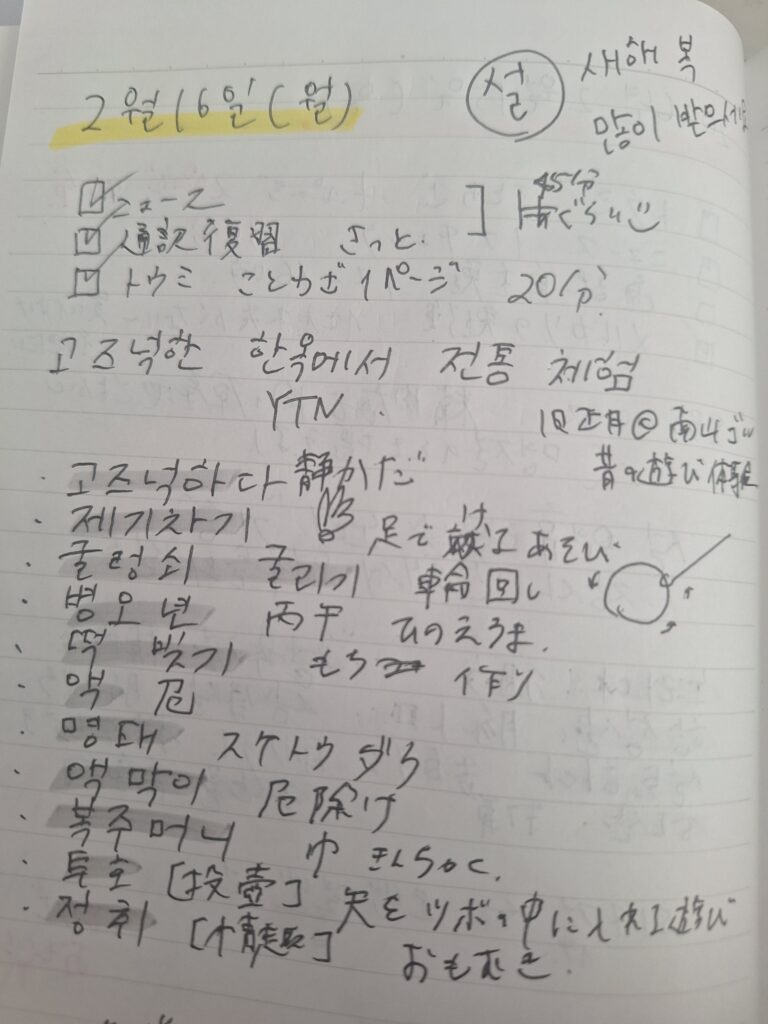 2월16일(월)
설 새해 복
많이 받으세요
☑ ニュース
45分
ぐらい
☑ 通訳復習 さっと.
☑ トウミ ことわざ 1ページ 20分
고즈넉한 한옥에서 전통 체험
YTN.
旧正月 南山
昔の遊び体験
・고즈넉하다 静かだ
・제기차기 足で蹴る あそび
け
・굴렁쇠 굴리기 輪回し
・병오년 丙午 ひのえうま.
・떡 빚기 もち 作り
・액 厄
・명태 スケトウダラ
・액막이 厄除け
・복주머니 巾きんちゃく.
・투호 [投壺] 矢をツボの中に入れる遊び
・정취 [情趣] おもむき.